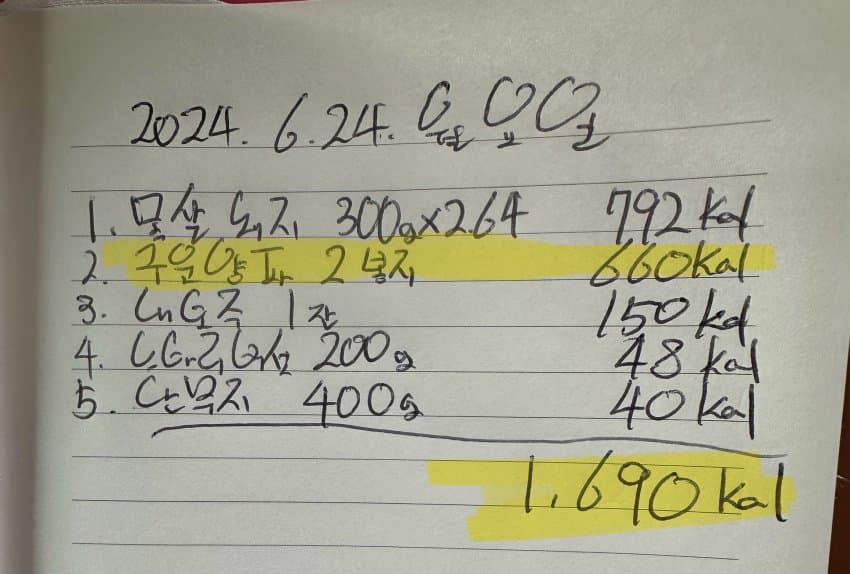 2024. 6.24. 월요일
1. 목살 돼지 300g×2.64 792 kal
2. 구운양파 2봉지 660Kal
3. 1잔 150 kal
4. 200g 48 kal
5. 단무지 400g 40 kal
1,690 kal